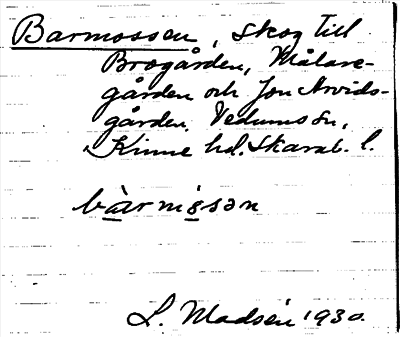 Barmossen, skog till
Brogården, Målare-
gården och Jon Arvids-
gården, Vedums sn,
Kinne hd. Skarab. l.
bàrmssən
L. Madsén 1930.